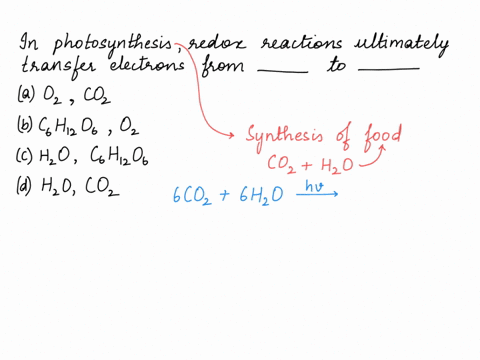 In photosynthesis, redox reactions ultimately
transfer electrons from _____ to _____
(a) O₂ , CO₂
(b) C₆H₁₂O₆ , O₂
(c) H₂O , C₆H₁₂O₆
(d) H₂O, CO₂
Synthesis of food
CO₂ + H₂O
6CO₂ + 6H₂O hν →